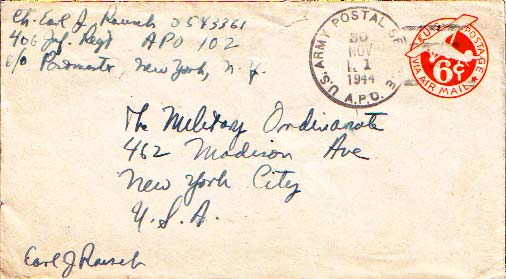 Ch. Earl J Rausch O 543361
406 Inf. Regt APO 102
c/o Postmaster, New York, N.Y.
U.S. ARMY POSTAL SE E
30
NOV
1
1944
A.P.O.
U.S. POSTAGE
6¢
VIA AIR MAIL
The Military Ordinariate
462 Madison Ave
New York City
U.S.A.
Earl J Rausch